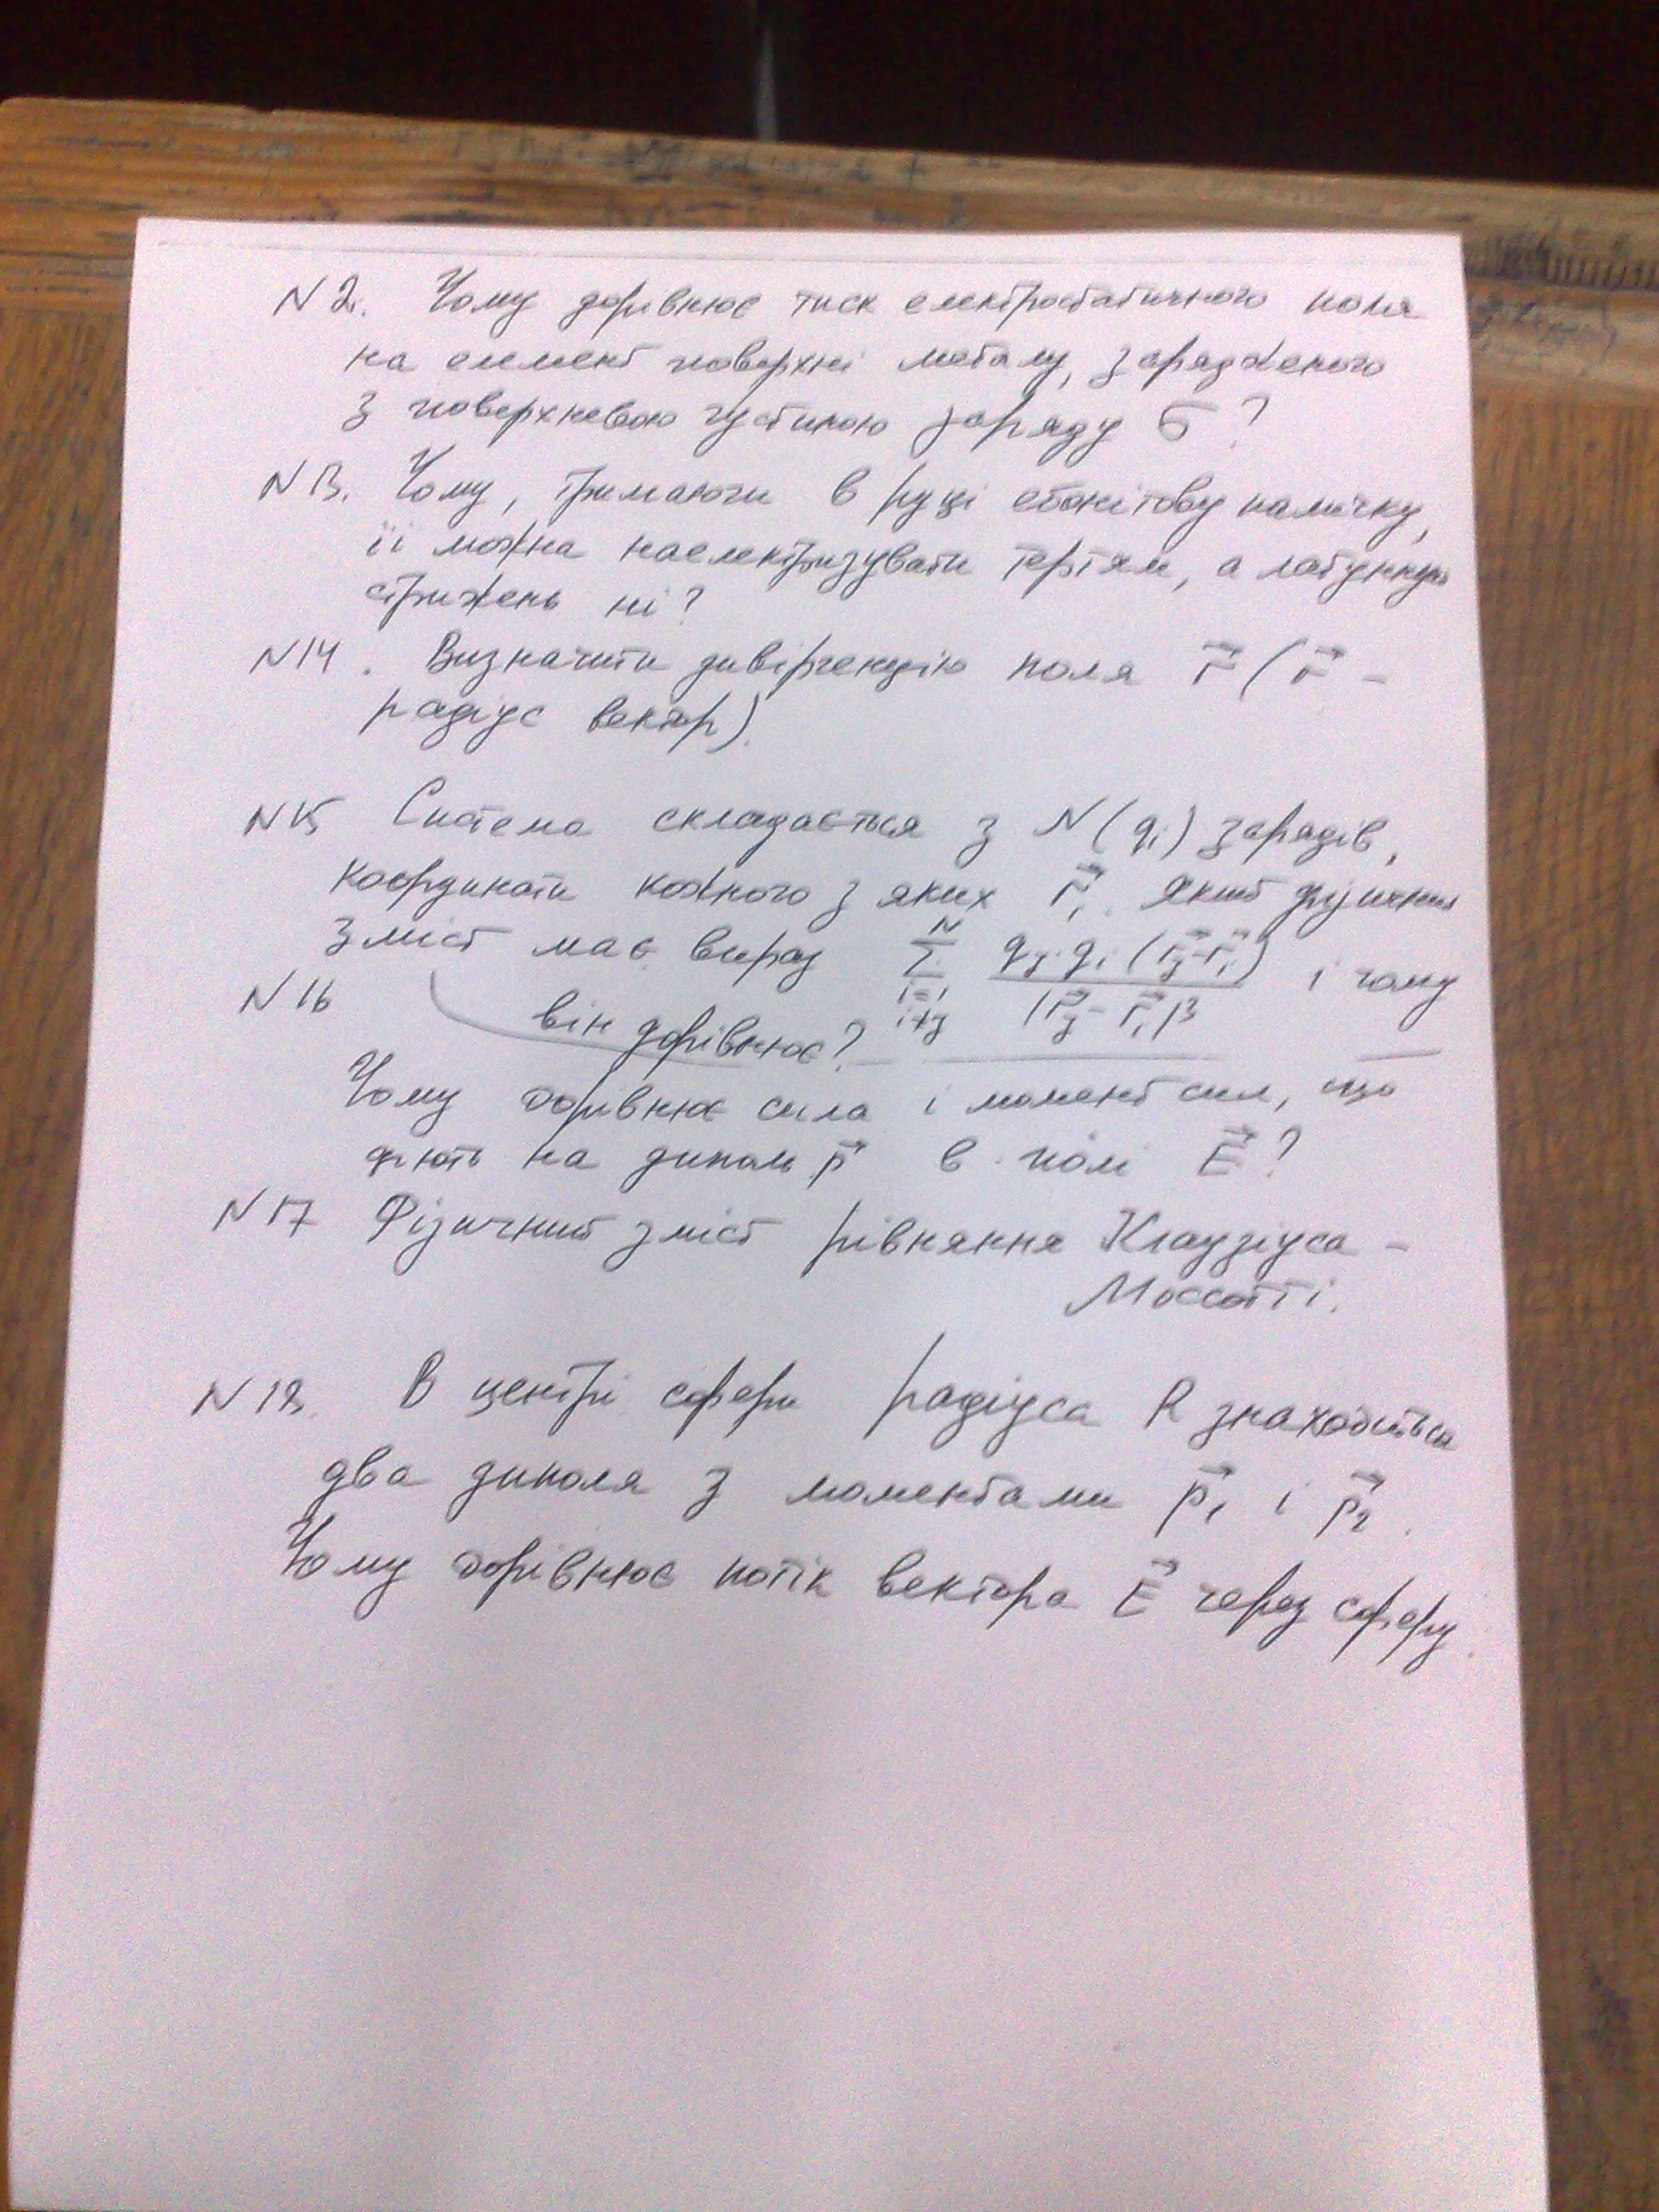 N 2. Чому дорівнює тиск електростатичного поля
на елемент поверхні металу, зарядженого
з поверхневою густиною заряду σ?
N 13. Чому, тримаючи в руці ебонітову паличку,
її можна наелектризувати тертям, а латунний
стрижень ні?
N 14. Визначити дивіргенцію поля r⃗ (r⃗ -
радіус вектор).
N 15 Система складається з N (qi) зарядів,
координати кожного з яких r⃗i. Який фізичний
зміст має вираз \sum_{i=1, i≠j}^{N} \frac{q_j q_i (r⃗_j - r⃗_i)}{|r⃗_j - r⃗_i|^3} і чому
він дорівнює?
N 16
Чому дорівнює сила і момент сил, що
діють на диполь p⃗ в полі E⃗?
N 17 Фізичний зміст рівняння Клаузіуса -
Моссотті.
N 18. В центрі сфери радіуса R знаходиться
два диполя з моментами p⃗1 і p⃗2.
Чому дорівнює потік вектора E⃗ через сферу.